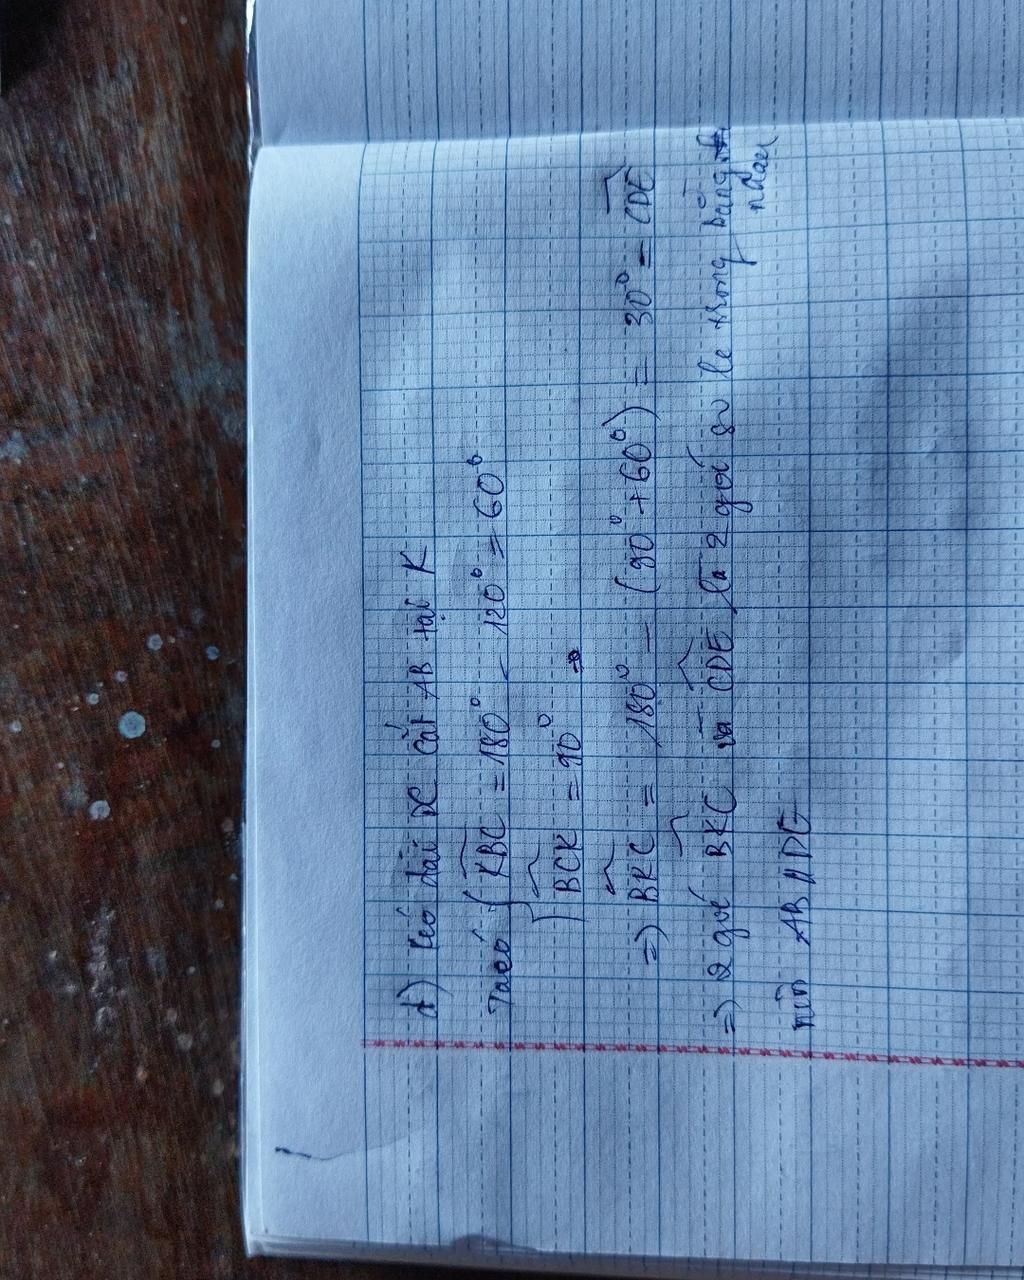 d) Kéo dài DC cắt AB tại K
Ta có { KBC = 180° - 120° = 60°
BCK = 90°
=) BKC = 180° - (90° + 60°) = 30° = CDE
=) 2 góc BKC và CDE là 2 góc so le trong bằng
nhau
nên AB // DE